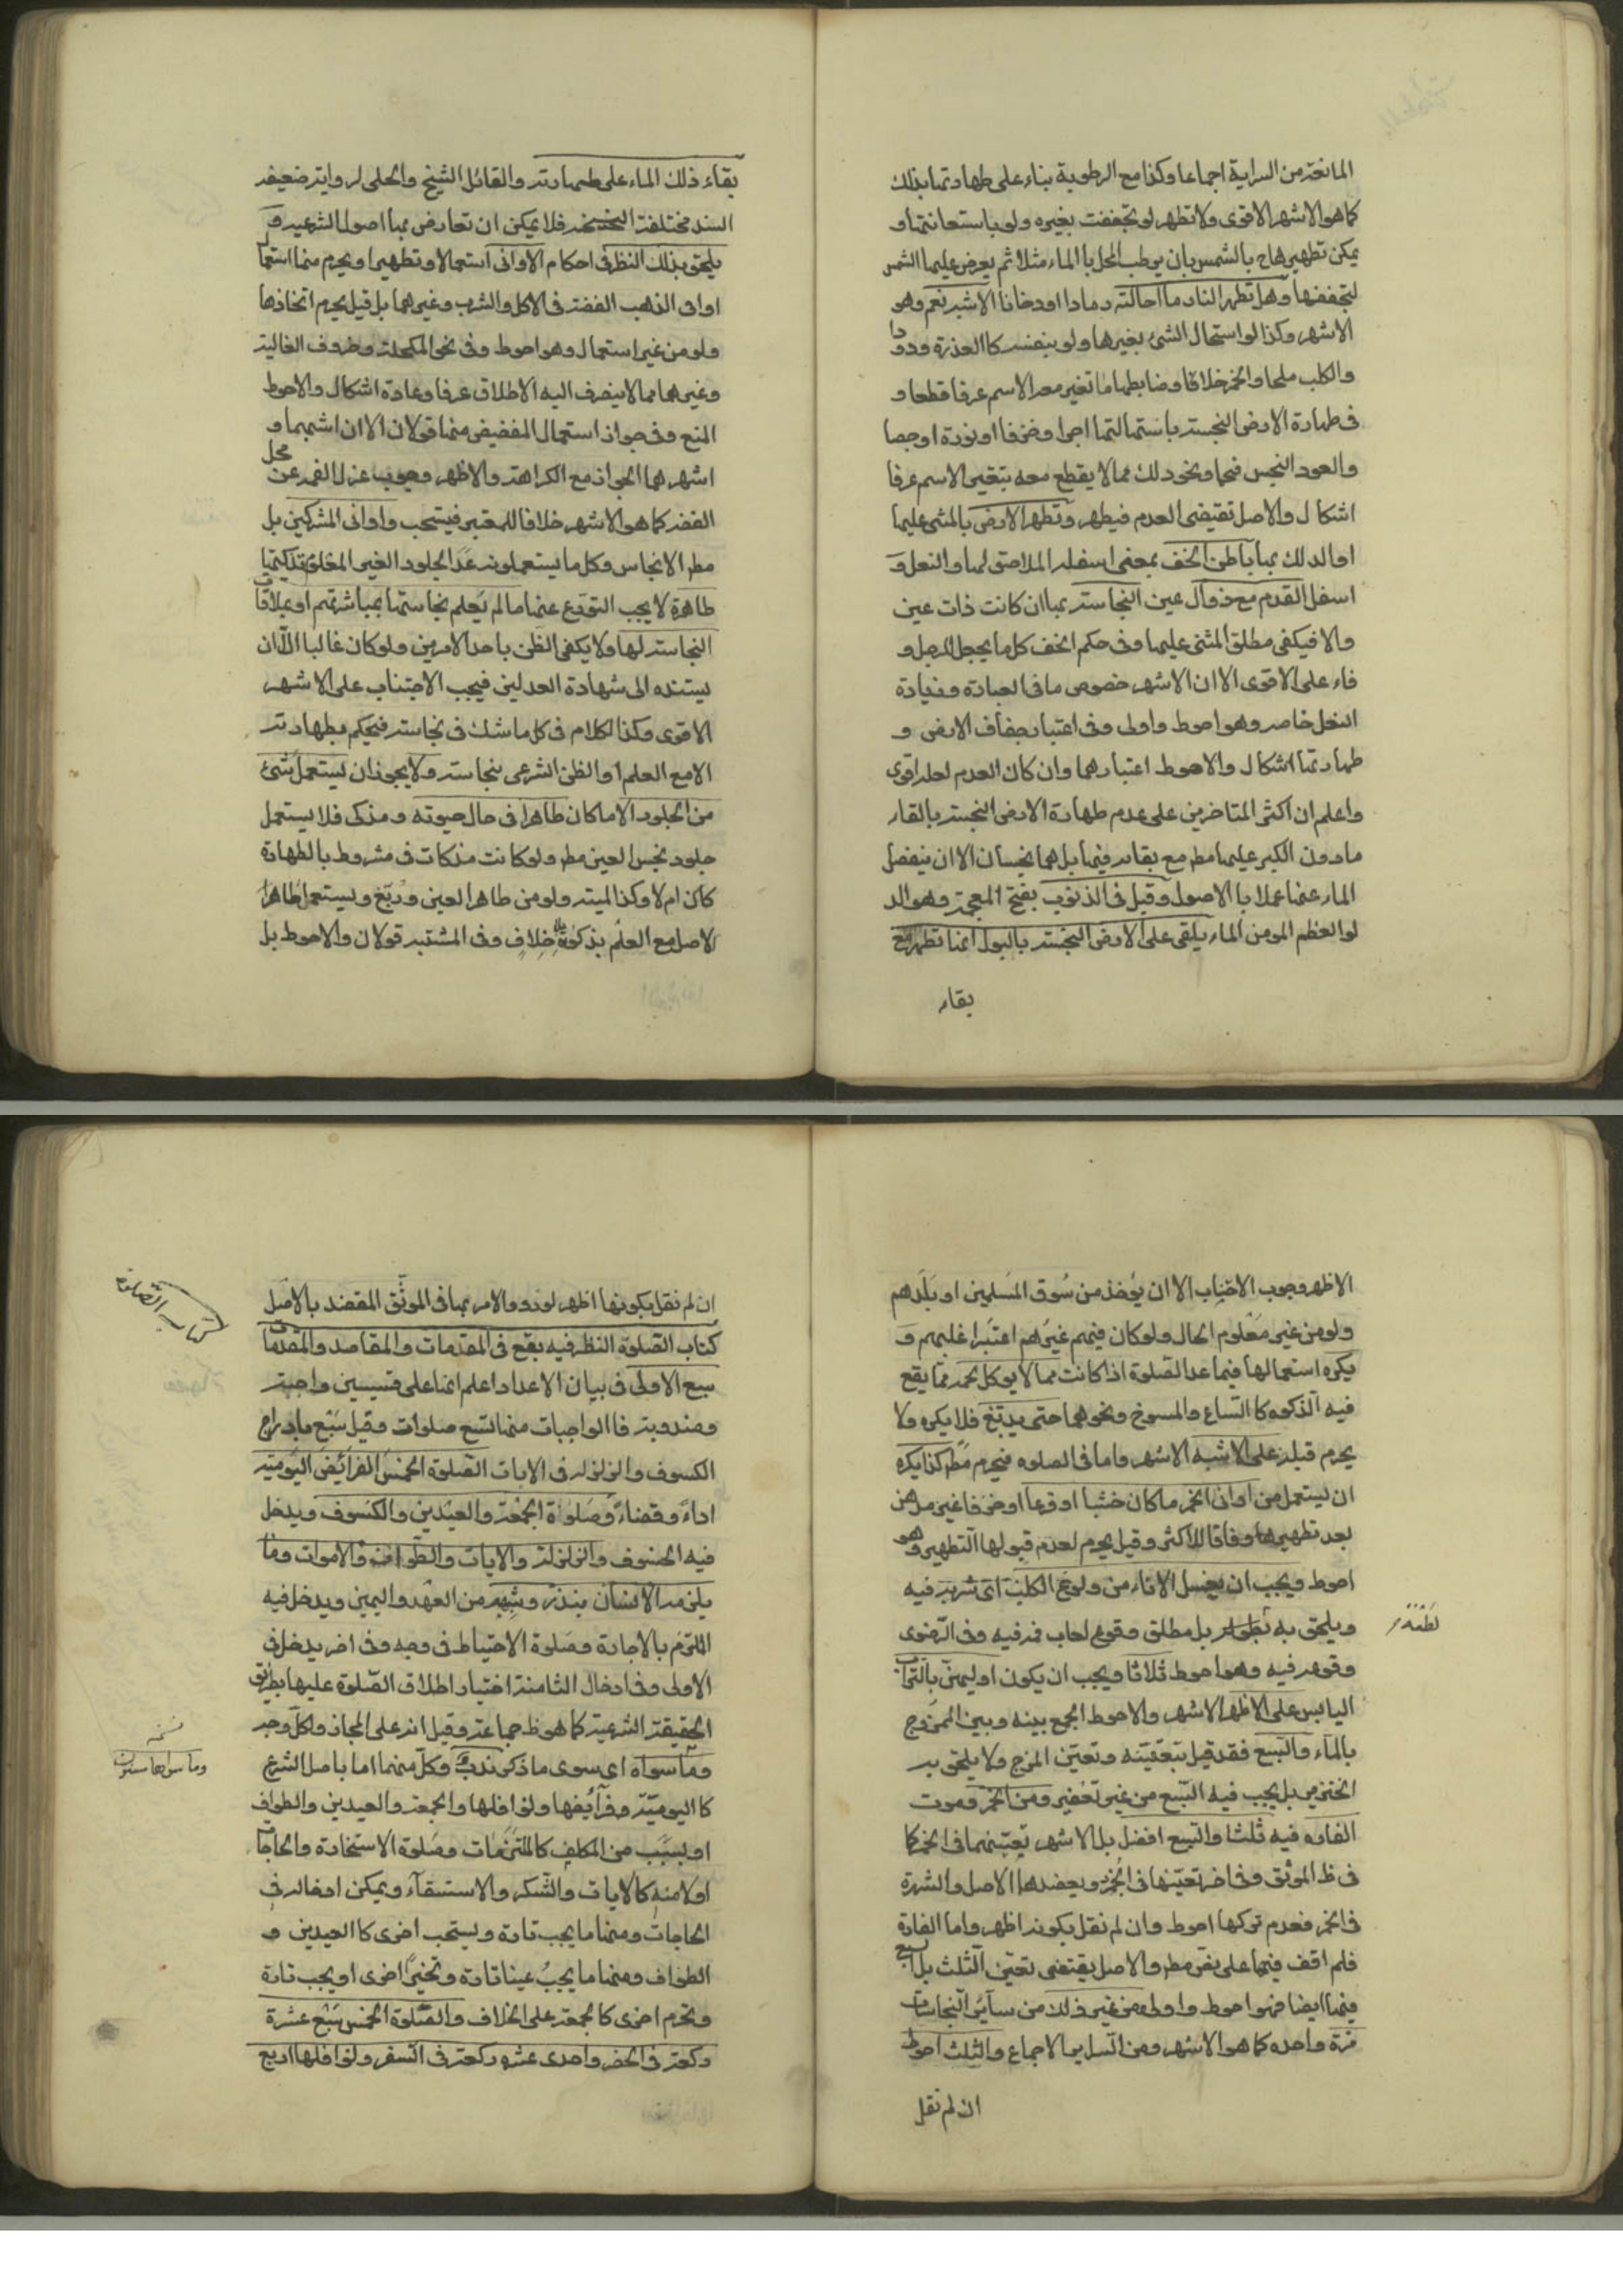 المانعة من السراية اجماعا وكذا مع الرطوبة بناء على طهارتها بذلك
كما هو الاشهر الاقوى ولا تطهر لو تجففت بغيره ولو باستعانتها و
يمكن تطهيرها ح بالشمس بان يرطب المحل بالماء مثلا ثم يعرض عليها الشمس
لتجففها وهل تطهر النار ما احالته رمادا او دخانا الاشبه نعم وهو
الاشهر وكذا لو استحال الشئ بغيرها ولو بنفسه كالعذرة ودودا
والكلب ملحا والخمر خلا وضابطها ما تغير معه الاسم عرفا قطعا و
فى طهارة الارض النجسة باستحالتها اجرا وخزفا او نورة او جصا
والعود النجس فحما ونحو ذلك مما لا يقطع معه بتغير الاسم عرفا
اشكال والاصل تقيضى العدم فيطهر وتطهر الارض بالمشى عليها
او الدلك بها باطن الخف بمعنى اسفله الملاصق لها والنعل و
اسفل القدم مع زوال عين النجاسة بها ان كانت ذات عين
والا فيكفى مطلق المشى عليها وفى حكم الخف كل ما يجعل للرجل و
قاء على الاقوى الا ان الاشهر خصوص ما فى العبارة وزيادة
النعل خاصه وهو احوط واولى وفى اعتبار جفاف الارض و
طهارتها اشكال والاحوط اعتبارهما وان كان العدم لعله اقوى
واعلم ان اكثر المتاخرين على عدم طهارة الارض النجسة بالقاء
ما دون الكر عليها مط مع بقائه فيها بل هما نجسان الا ان ينفصل
الماء عنها عملا با الاصول وقيل فى الذنوب بفتح المعجمة وهو الد
لو العظم المو من الماء يلقى على الارض النجسة بالبول انها تطهر مع
بقاء
بقاء ذلك الماء على طهارته والقائل الشيخ والحلى لرواية ضعيفة
السند مختلفة النسخ فلا يمكن ان تعارض بها اصول الشرعيه و
يلحق بذلك النظر فى احكام الاوانى استعمالا وتطهيرا ويحرم منها استعما
اوانى الذهب الفضة فى الاكل والشرب وغيرهما بل قيل يحرم اتخاذها
ولو من غير استعمال وهو احوط وفى نحو المكحلة وظروف الغالية
وغيرهما مما لا ينصرف اليه الاطلاق عرفا وعادة اشكال والاحوط
المنع وفى جواز استعمال المفضض منها قولان الا ان اشبههما و
اشهرهما الجواز مع الكراهة والاظهر وجوب عزل الفم عن محل
الفضة كما هو الاشهر خلافا للمعتبر فيستحب واوانى المشركين بل
مطر الانجاس وكل ما يستعملونه عدا الجلود الغير المعلوم تذكيتها
طاهرة لا يجب التورع عنها ما لم يعلم نجاستها بمباشرتهم او بملاقات
النجاسة لها ولا يكفى الظن باحد الامرين ولو كان غالبا الا ان
يستند الى شهادة العدلين فيجب الاجتناب على الاشهر
الاقوى وكذا الكلام فى كل ما شك فى نجاسته فيحكم بطهارته
الا مع العلم او الظن الشرعى بنجاسته ولا يجوز ان يستعمل شئ
من الجلود الا ما كان طاهرا فى حال حيوته ومذكى فلا يستعمل
جلود نجس العين مط ولو كانت مذكات فى مشروط بالطهارة
كان ام لا وكذا الميته ولو من طاهر العين ودبغ ويستعمل طاهر
الاصل مع العلم بذكوته بلا خلاف وفى المشتبه قولان والاحوط بل
الاظهر وجوب الاجتناب الا ان يؤخذ من سوق المسلمين او بلدهم
ولو من غير معلوم الحال ولو كان فيهم غيرهم اعتبر اغلبهم و
يكره استعمالها فيما عدا الصلوة اذا كانت مما لا يوكل لحمه مما يقع
فيه الذكوه كا السباع والمسوخ ونحوهما حتى يدبغ فلا يكره ولا
يحرم قبله على الاشبه الاشهر واما فى الصلوه فيحرم مط كذا يكره
ان يستعمل من اوانى الخمر ما كان خشبا او قرعا او خزفا غير مدهن
بعد تطهيرها وفاقا للاكثر وقيل يحرم لعدم قبولها التطهير وهو
احوط ويجب ان يغسل الاناء من ولوغ الكلب اى شربه فيه
ويلحق به لطعه بل مطلق وقوع لعاب فمه فيه وفى الرضوى
لطعه
وقوعه فيه وهو احوط ثلاثا ويجب ان يكون اوليهن بالتراب
اليابس على الاظهر الاشهر والاحوط الجمع بينه وبين الممزوج
بالماء والسبع فقد قيل بتعينه وتعين المزج ولا يلحق به
الخنزير بل يجب فيه السبع من غير تعفير ومن الخمر وموت
الفاره فيه ثلثا والسبع افضل بل الاشهر تعينهما فى الخمر كا
فى ظ الموثق وفى اخر تعينها فى الخمر ويعضدها الاصل والشهرة
فى الخمر فعدم تركها احوط وان لم نقل بكونه اظهر واما الفارة
فلم اقف فيها على نص مط والاصل يقتضى تعين الثلث بل السبع
فيها ايضا فهو احوط واولى ومن غير ذلك من سائر النجاسات
مرة واحده كما هو الاشهر ومن السايما الاجماع والثلث احوط
ان لم نقل
ان لم نقل بكونها اظهر لورود الامر بها فى الموثق المعتضد بالاصل
كتاب الصلوة
كتاب الصلوة النظر فيه يقع فى المقدمات والمقاصد والمقدمات
سبع الاولى فى بيان الاعداد اعلم انها على قسمين واجبة
ومندوبة فا الواجبات منها تسع صلوات وقيل سبع بادراج
الكسوف والزلزله فى الايات الصلوة الخمس الفرائض اليومية
اداء وقضاء وصلواة الجمعة والعيدين والكسوف ويدخل
فيه الخسوف والزلزلة والايات والطواف والاموات وما
يلزمه الانسان بنذر وشبهه من العهد واليمين ويدخل فيه
الملتزم بالاجارة وصلوة الاحتياط فى وجه وفى اخر يدخل فى
الاولى وفى ادخال الثامنة اختيار اطلاق الصلوة عليها بطريق
الحقيقة الشرعية كما هو ظ جماعة وقيل انه على المجاز ولكل وجه
وما سواه اى سوى ما ذكر ندب وكل منهما اما باصل الشرع
نسخه
وما سواها مسنون
كا اليومية وفرآيضها ونوافلها والجمعة والعيدين والطواف
او بسبب من المكلف كا الملتزمات وصلوة الاستخارة والحاجات
اولا منه كالايات والشكر والاستسقاء ويمكن ادخاله فى
الحاجات ومنها ما يجب تارة ويستحب اخرى كا العيدين و
الطواف ومنها ما يجب عينا تارة وتخييرا اخرى او يجب تارة
وتحرم اخرى كا لجمعة على الخلاف والصلوة الخمس سبع عشرة
ركعة فى الحضر واحدى عشره ركعة فى السفر ونوافلها اربع